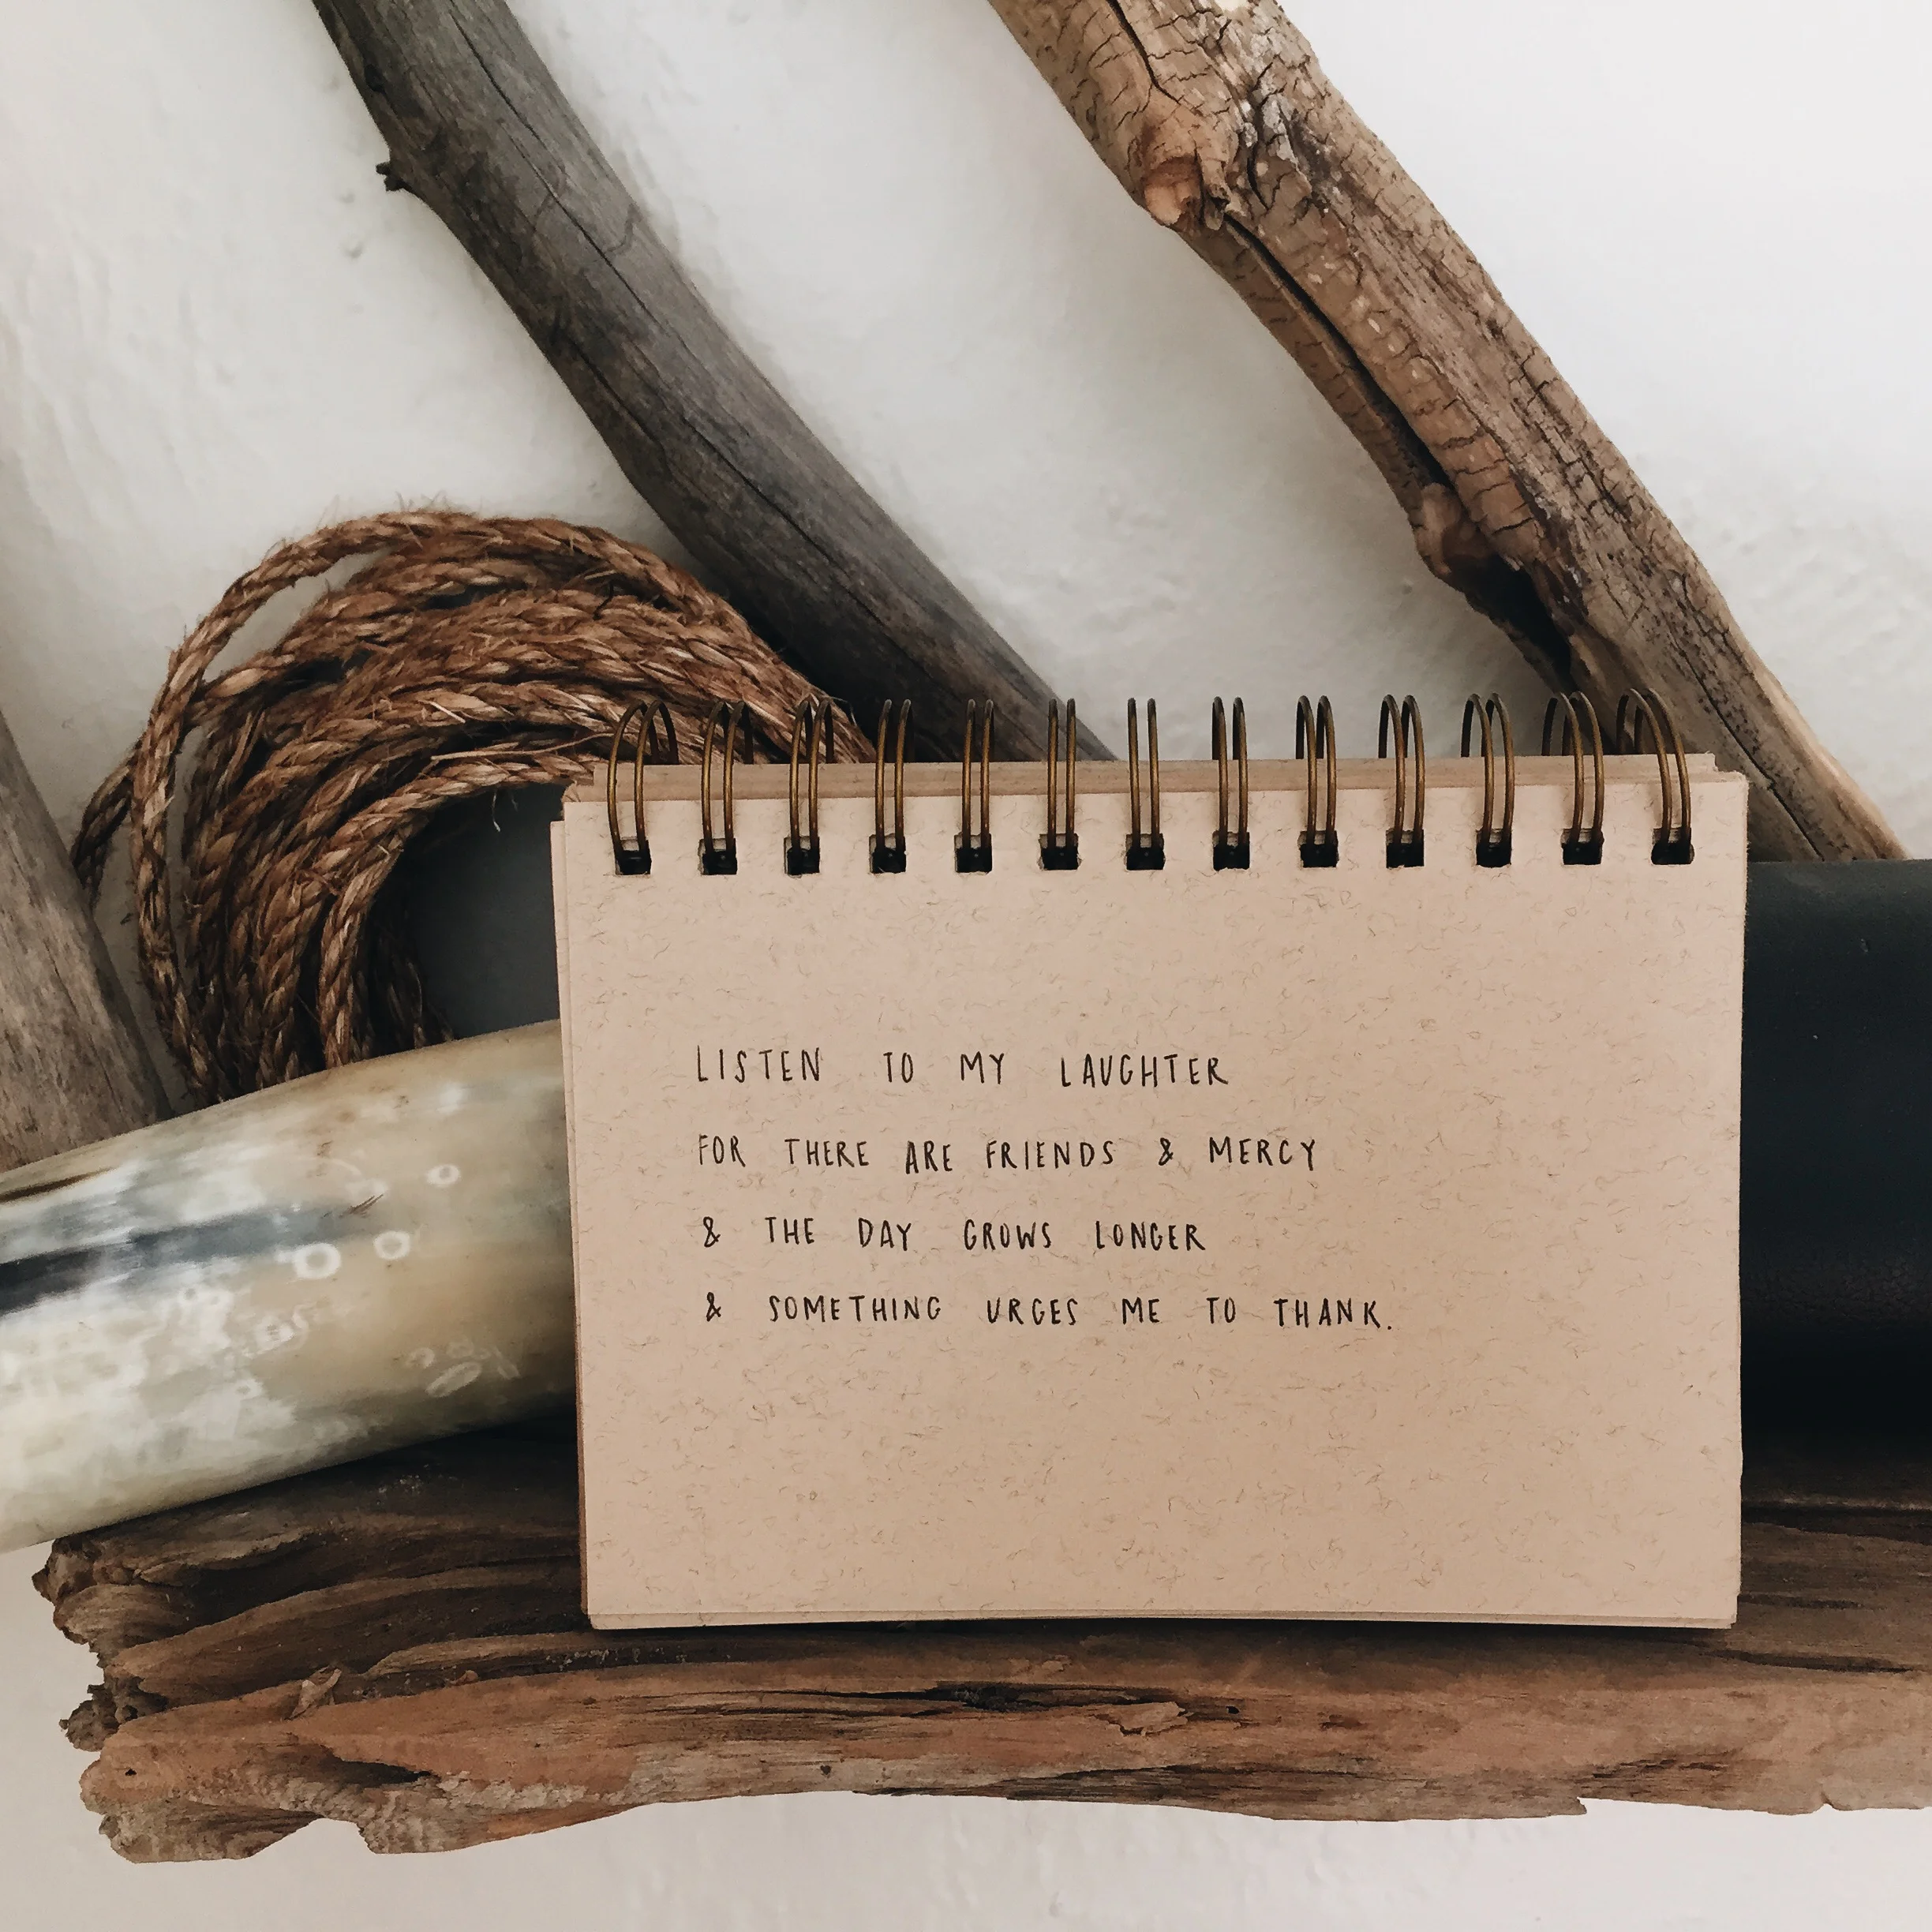 LISTEN TO MY LAUGHTER
FOR THERE ARE FRIENDS & MERCY
& THE DAY GROWS LONGER
& SOMETHING URGES ME TO THANK.